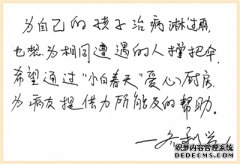 为自己的孩子治病淋过雨，
也想为相同遭遇的人撑把伞，
希望通过“小白春天”爱心厨房，
为病友提供力所能及的帮助。